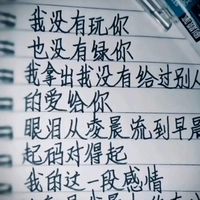 我没有玩你
也没有绿你
我拿出我没有给过别人
的爱给你
眼泪从凌晨流到早晨
起码对得起
我的这一段感情